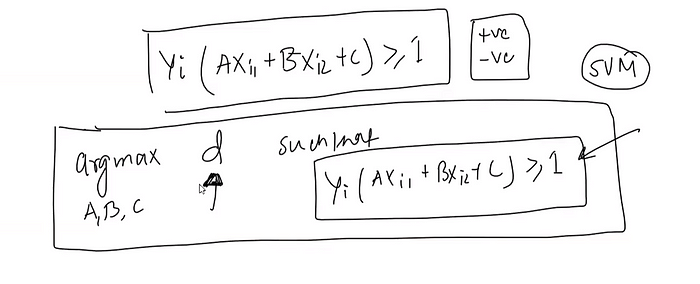 Yi (AXi1 + BXi2 + C) ≥ 1
+ve
-ve
SVM
argmax d such that
A, B, C
Yi (AXi1 + BXi2 + C) ≥ 1